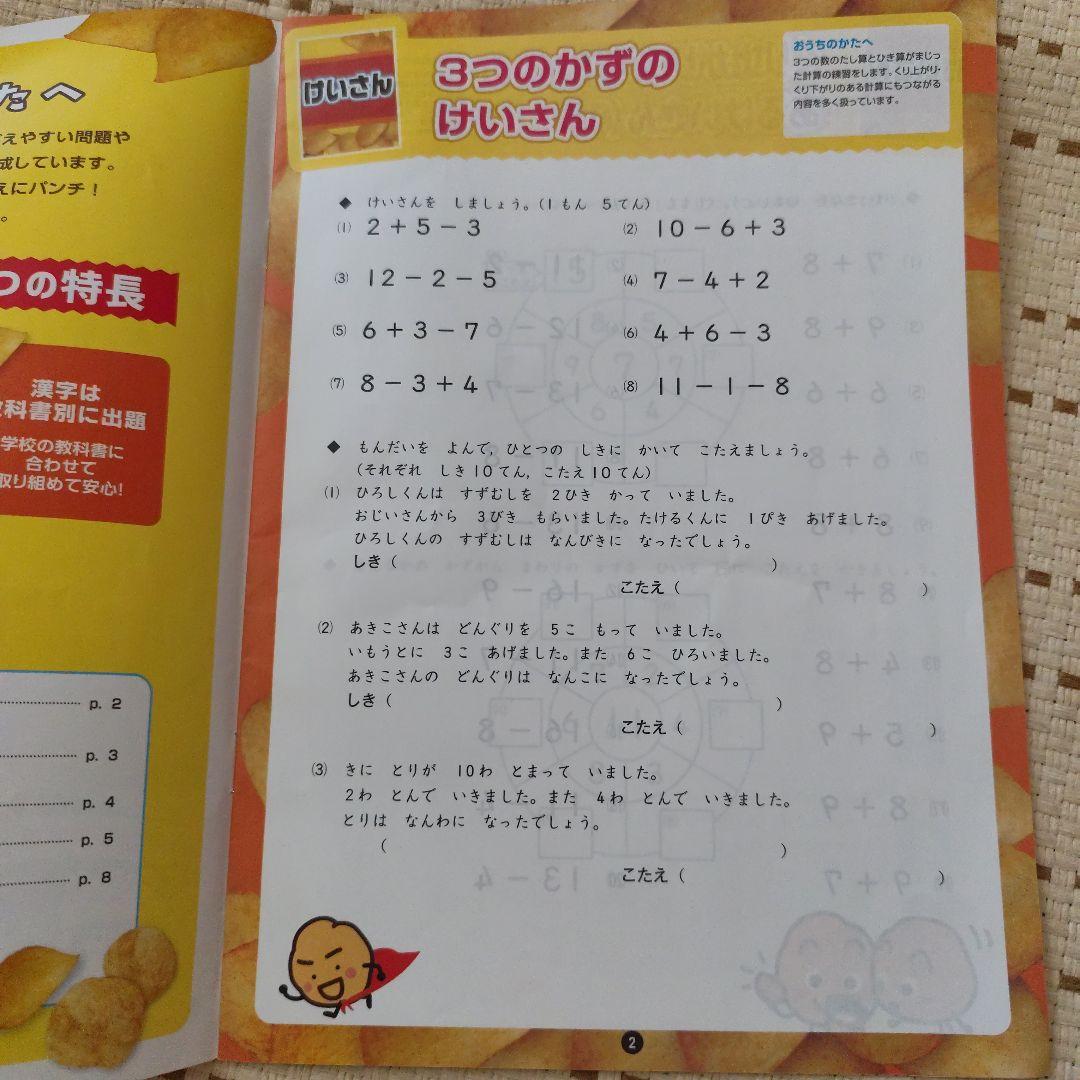 たへ
えやすい問題や
成しています。
えにパンチ！
。
つの特長
漢字は
教科書別に出題
学校の教科書に
合わせて
取り組めて安心!
p. 2
p. 3
p. 4
p. 5
p. 8
けいさん
3つのかずの
けいさん
おうちのかたへ
3つの数のたし算とひき算がまじっ
た計算の練習をします。くり上がり・
くり下がりのある計算にもつながる
内容を多く扱っています。
◆ けいさんを しましょう。(1もん 5てん)
(1) 2+5-3
(2) 10-6+3
(3) 12-2-5
(4) 7-4+2
(5) 6+3-7
(6) 4+6-3
(7) 8-3+4
(8) 11-1-8
◆ もんだいを よんで, ひとつの しきに かいて こたえましょう。
(それぞれ しき10てん, こたえ10てん)
(1) ひろしくんは すずむしを 2ひき かって いました。
おじいさんから 3びき もらいました。たけるくんに 1ぴき あげました。
ひろしくんの すずむしは なんびきに なったでしょう。
しき( )
こたえ( )
(2) あきこさんは どんぐりを 5こ もって いました。
いもうとに 3こ あげました。また 6こ ひろいました。
あきこさんの どんぐりは なんこに なったでしょう。
しき( )
こたえ( )
(3) きに とりが 10わ とまって いました。
2わ とんで いきました。また 4わ とんで いきました。
とりは なんわに なったでしょう。
( )
こたえ( )
2